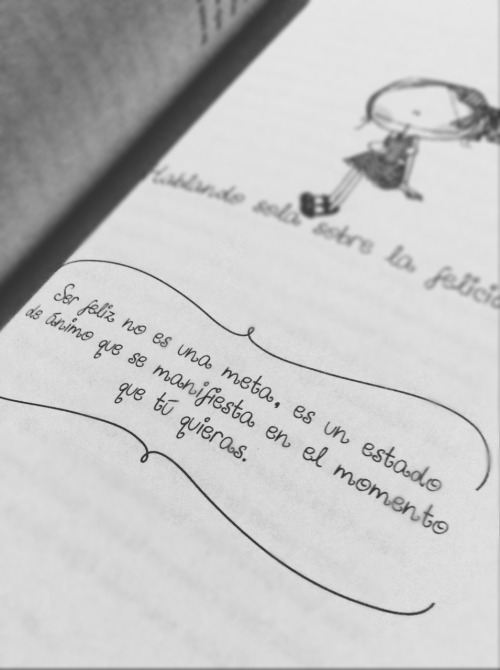 Hablando sola sobre la
Ser feliz no es una meta, es un estado
de ánimo que se manifiesta en el momento
que tú quieras.